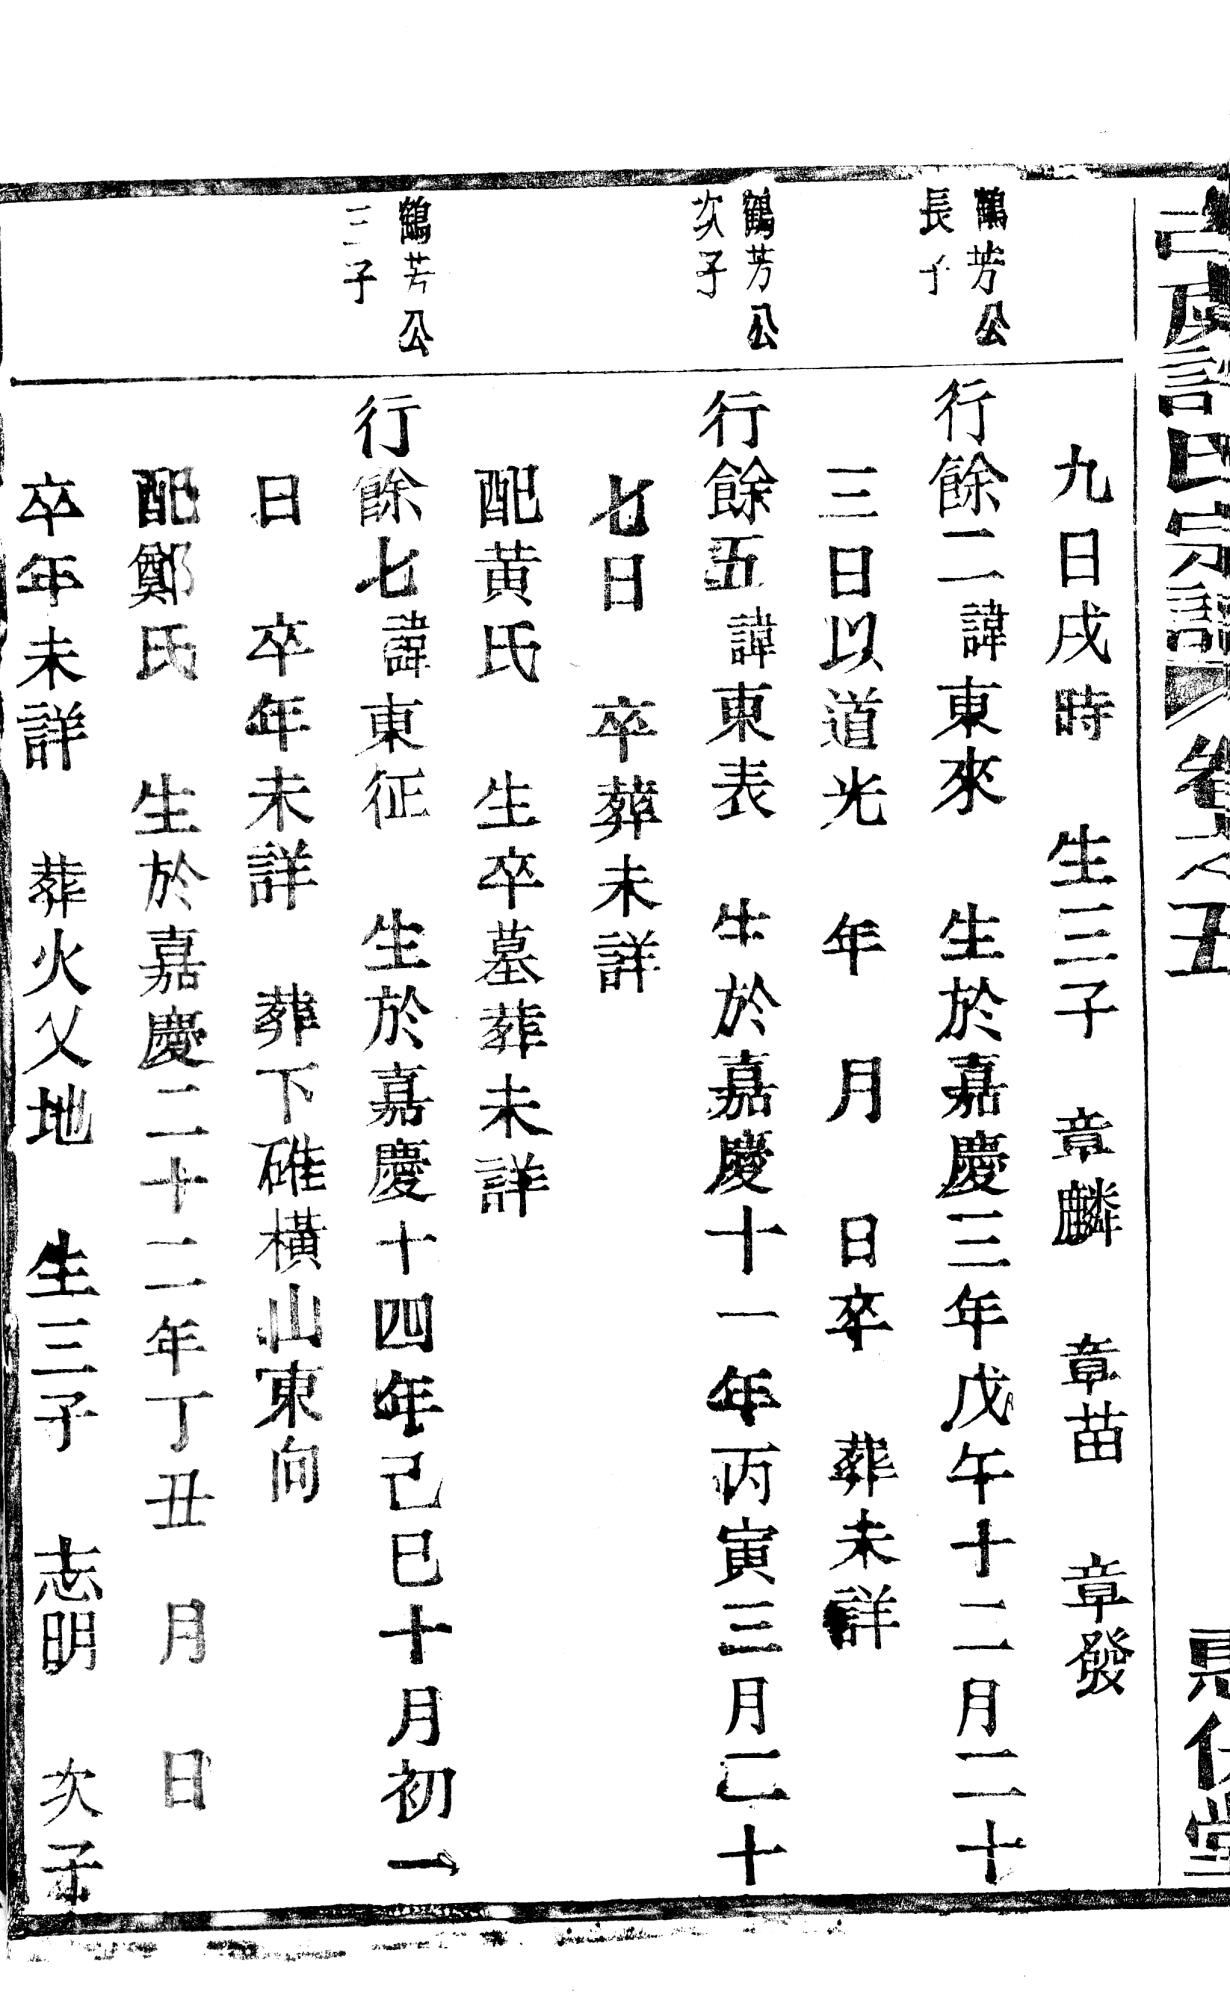 許氏宗譜 卷之五 堂
九日戌時 生三子 章麟 章苗 章發
鶴芳公
長子
行餘二諱東來 生於嘉慶三年戊午十二月二十
三日以道光 年 月 日卒 葬未詳
鶴芳公
次子
行餘五諱東表 生於嘉慶十一年丙寅三月二十
七日 卒葬未詳
配黄氏 生卒墓葬未詳
鶴芳公
三子
行餘七諱東征 生於嘉慶十四年己巳十月初一
日 卒年未詳 葬下碓橫山東向
配鄭氏 生於嘉慶二十二年丁丑 月 日
卒年未詳 葬火乂地 生三子 志明 次子